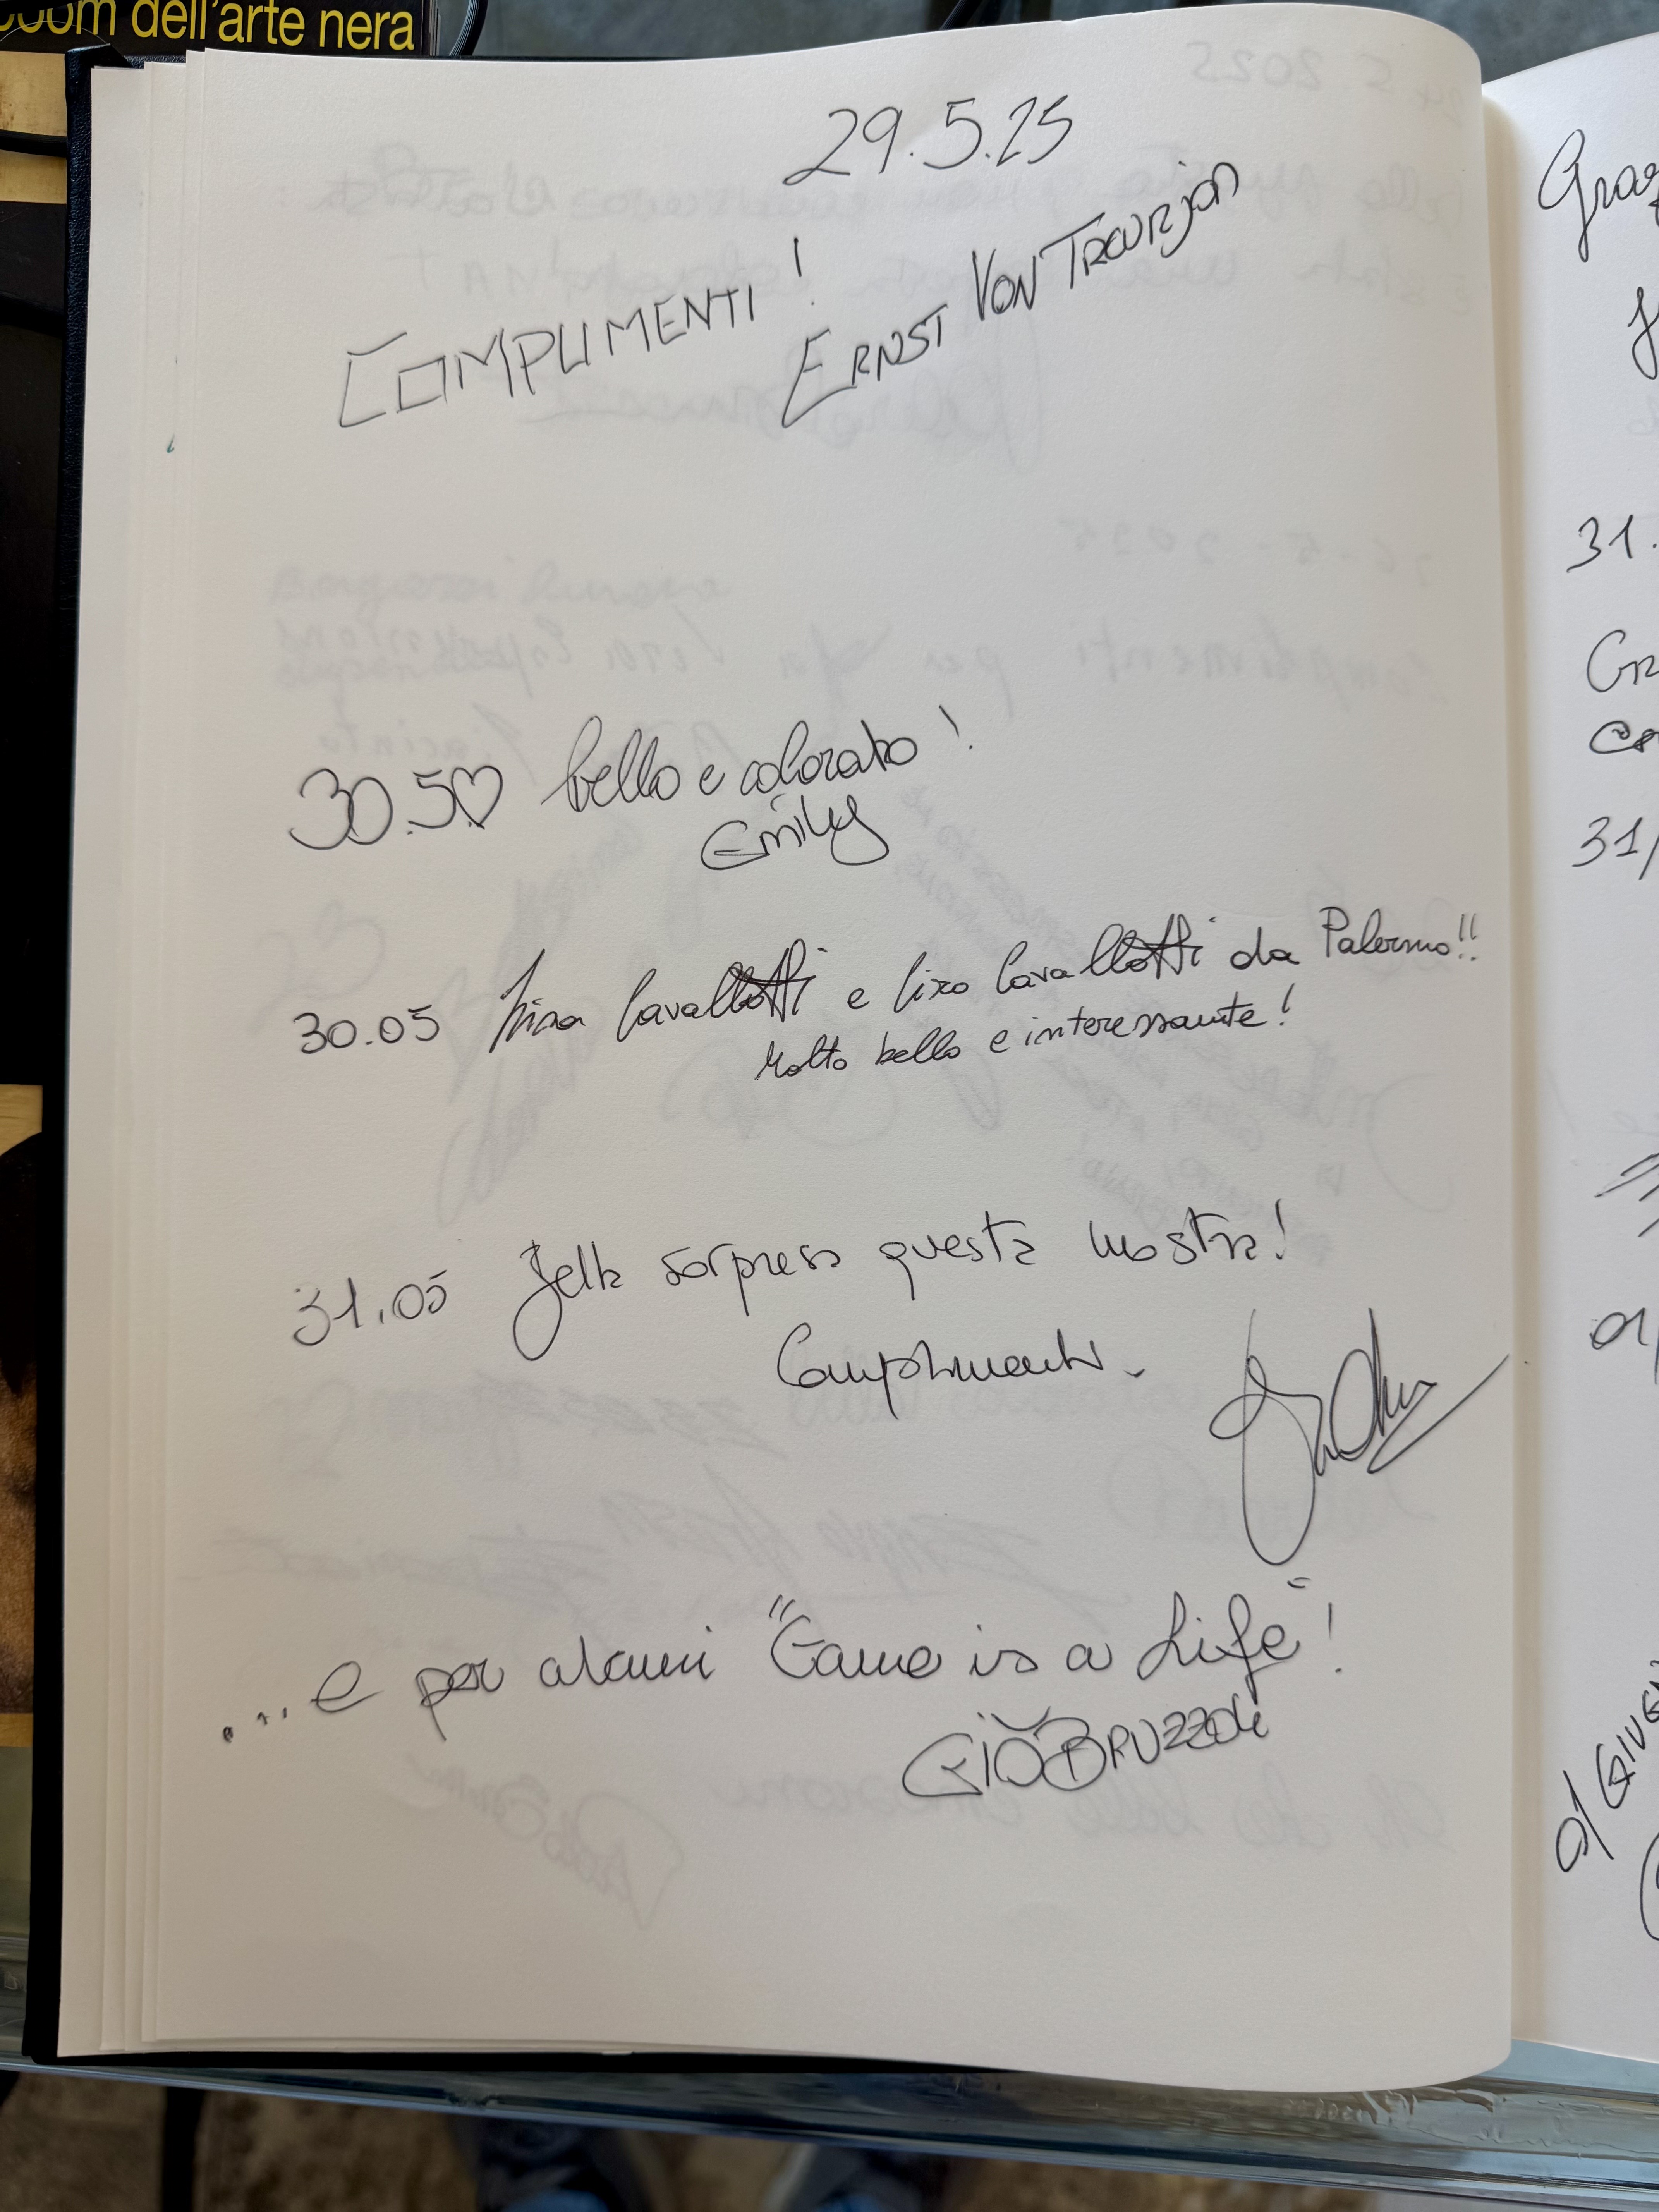 dell'arte nera
29.5.25
COMPLIMENTI!
ERNST VON
30.5♡ bello e colorato!
Emily
30.05 Cavallotti e Cavallotti da Palermo!!
Molto bello e interessante!
31.05 Bella sorpresa questa mostra!
Complimenti.
...e per alcuni "Game is a Life"!
GIÒ BRUZZONE
31.
31/
01/